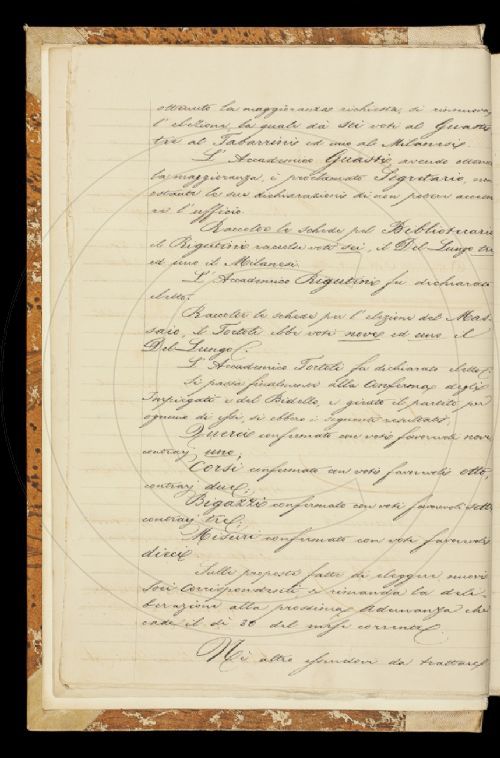 ottenuto la maggioranza richiesta, si rinnova
l'elezione la quale dà sei voti al Guasti
tre al Tabarrini ed uno al Milanesi.
L'Accademico Guasti, avendo ottenuta
la maggioranza, è proclamato Segretario, non
ostante la sua dichiarazione di non potere accetta
re l'uffizio.
Raccolte le schede pel Bibliotecario
il Rigutini raccolse voti sei, il Del-Lungo tre
ed uno il Milanesi.
L'Accademico Rigutini fu dichiarato
eletto.
Raccolte le schede per l'elezione del Mas-
saio, il Tortoli ebbe voti nove ed uno il
Del-Lungo.
L'Accademico Tortoli fu dichiarato eletto.
Si passò finalmente alla conferma degli
Impiegati e del Bidello, e girato il partito per
ognuno di essi, si ebbero i seguenti resultati:
confermato con voti favorevoli nove
contrarj uno;
Corsi confermato con voti favorevoli otto,
contrarj due;
Bigazzi confermato con voti favorevoli sette
contrarj tre;
Misuri confermato con voti favorevoli
dieci
Sulla proposta fatta di eleggere nuovi
Soci Corrispondenti si rimanda la deli-
berazione alla prossima Adunanza che
cade il dì del mese corrente.
Nè altro essendovi da trattare